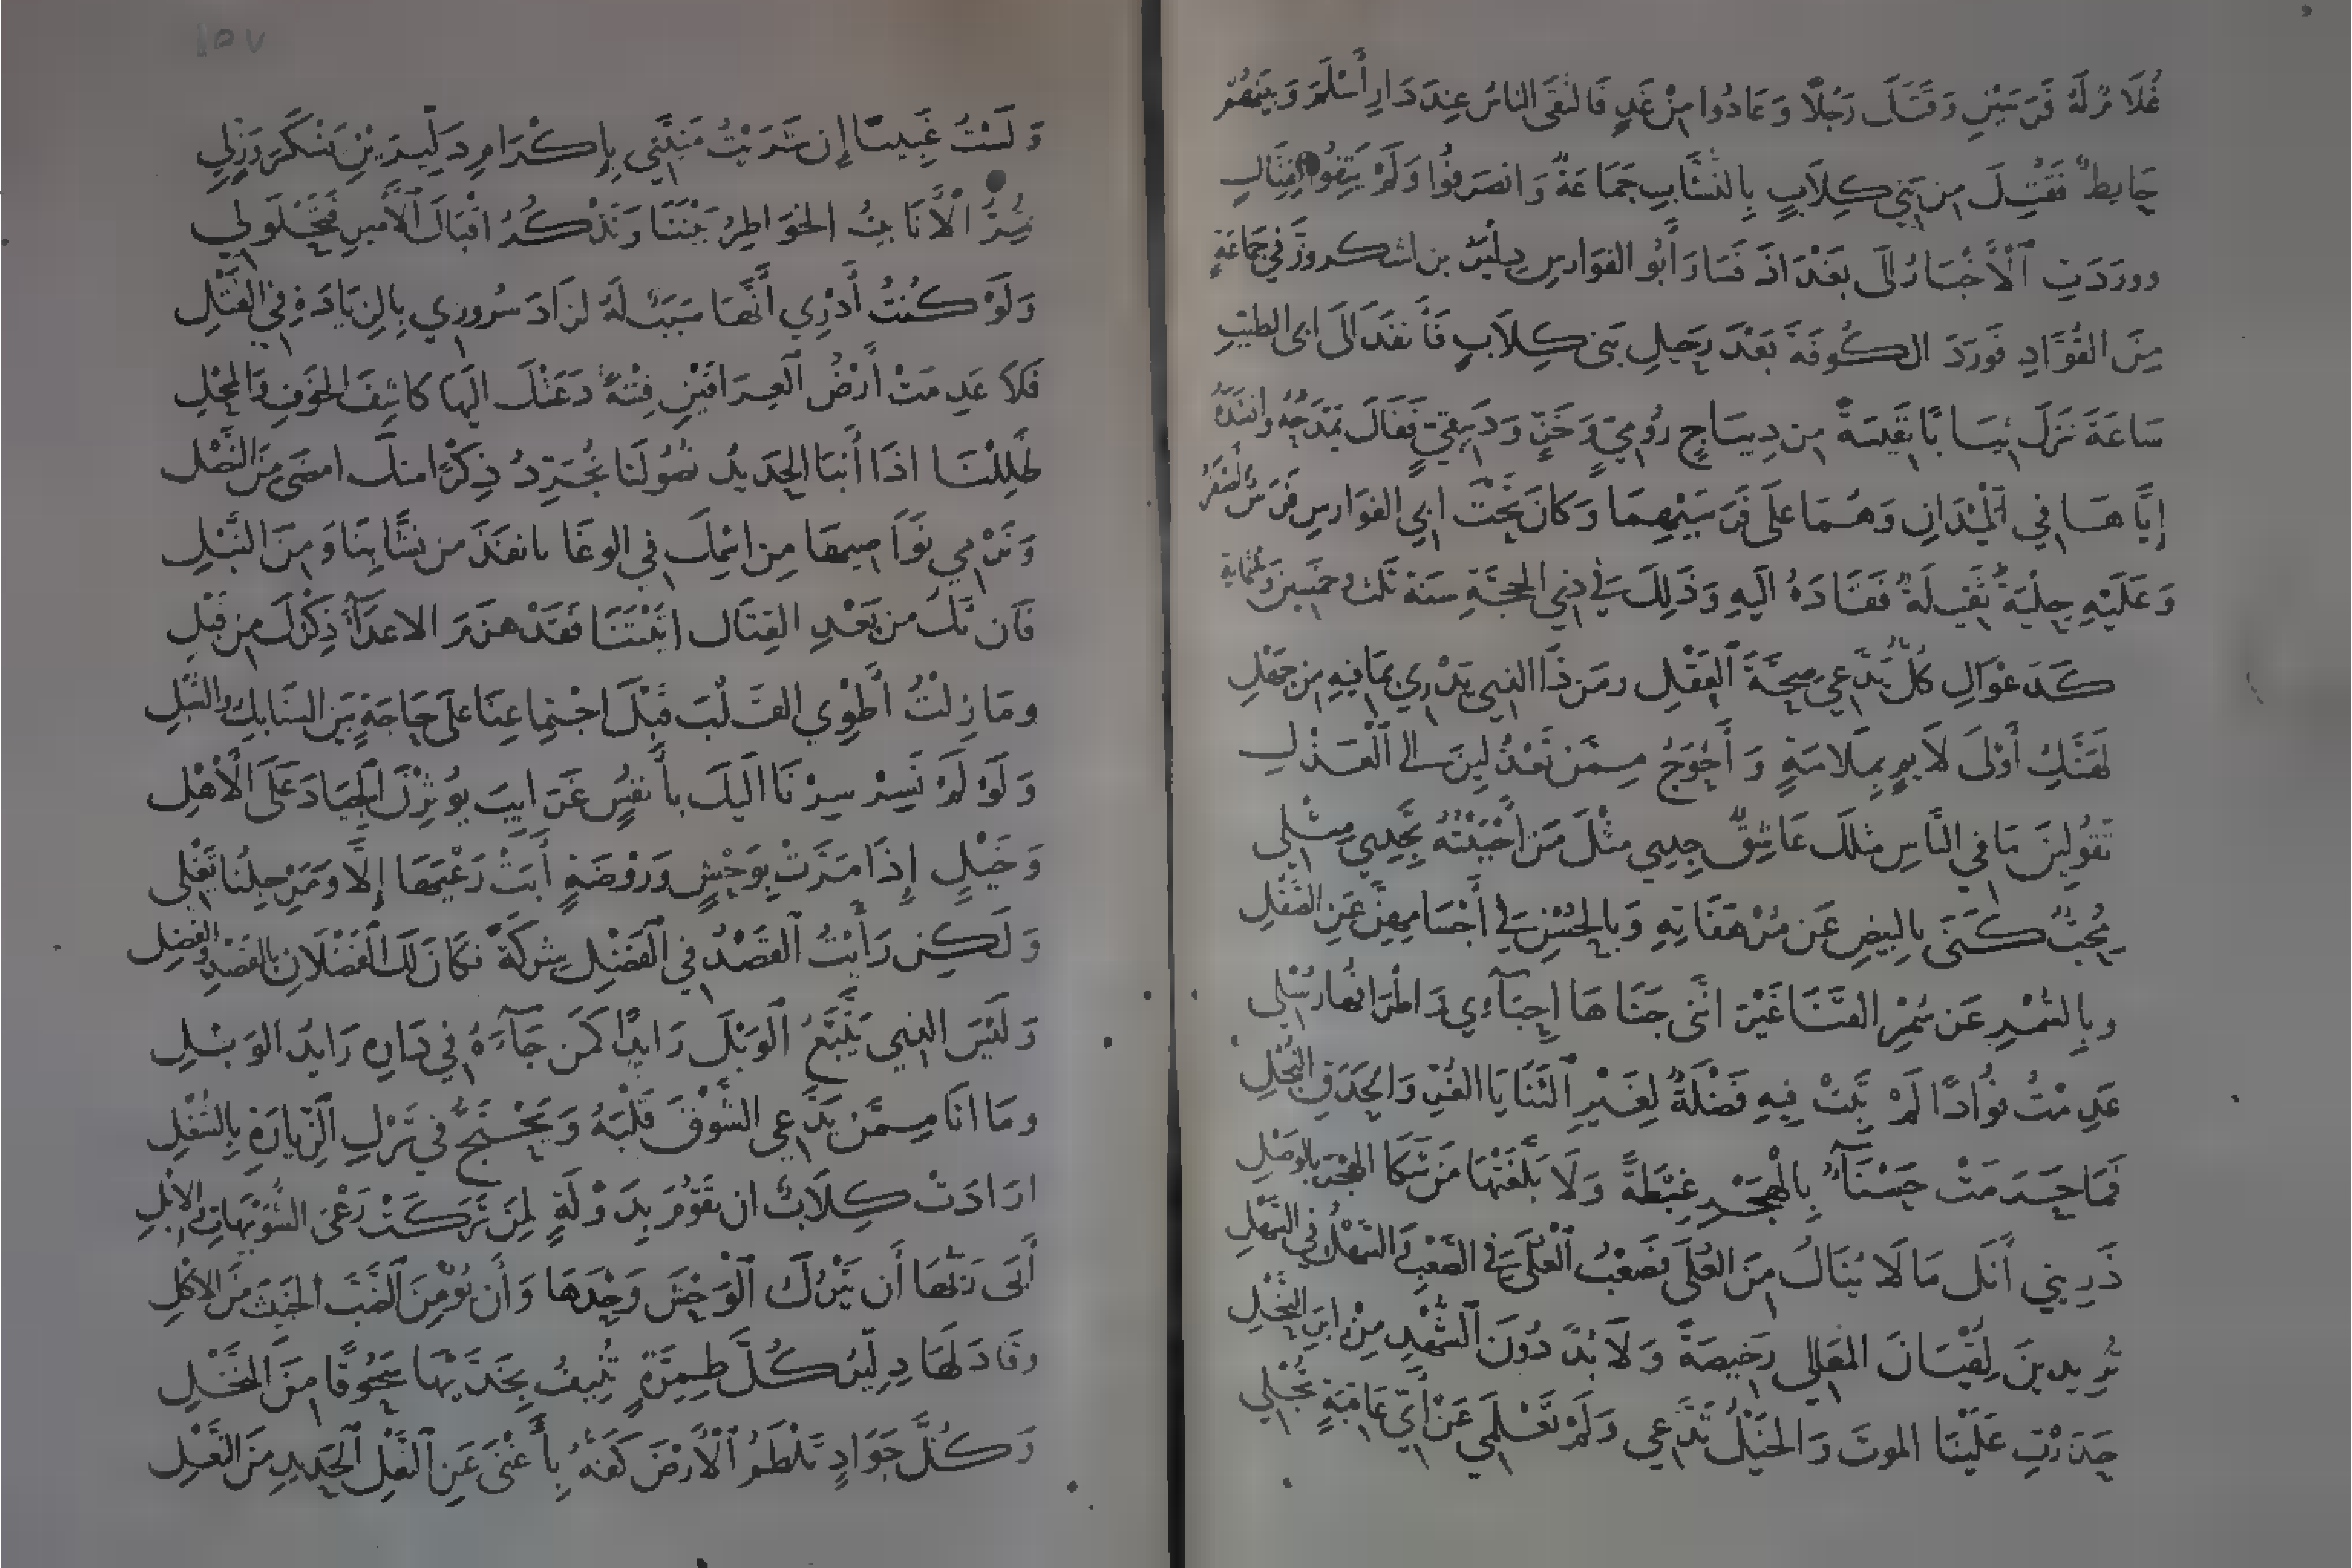 غُلَامٌ لَهُ فَرَسَيْنِ وَقَتَلَ رَجُلًا وَعَادُوا مِنْ غَدٍ فَالْتَقَى النَّاسُ عِندَ دَارِ أَسْلَمَ وَبَيْنَهُمْ
حَايِطٌ فَقُتِلَ مِن بَنِي كِلَابٍ بِالنُّشَّابِ جَمَاعَةٌ وَانصَرَفُوا وَلَمْ يَقِفُوا لِقِتَالٍ
ووَرَدَتِ ٱلْأَخْبَارُ إلَى بَغْدَاذَ فَسَارَ أَبُو الفَوَارِسِ دِلَّيْرُ بن لشكروزَّ فِي جَمَاعَةٍ
مِنَ القُوَّادِ فَوَرَدَ الكُوفَةَ بَعْدَ رَحِيلِ بَنِي كِلَابٍ فَأَنفَذَ إلَى ابي الطيّبِ
سَاعَةَ نَزَلَ ثِيَابًا نَفِيسَةً مِن دِيبَاجٍ رُومِيٍّ وَخَزٍّ وَدَبِيقِيٍّ فَقَالَ يَمْدَحُهُ وانشَدَهُ
إِيَّاهَا فِي ٱلْمَيْدَانِ وَهُمَا عَلَى فَرَسَيْهِمَا وَكَانَ تَحْتَ ابي الفَوَارِسِ فَرَسٌ أَصْفَرُ
وَعَلَيْهِ حِلْيَةٌ ثَقِيلَةٌ فَقَادَهُ الَيهِ وَذَلِكَ فِي ذِي الحجَّةِ سَنَة ثَلث وخَمسِينَ وَثلثمايةٍ
كَدَعْوَاكِ كُلٌّ يَدَّعِي صِحَّةَ ٱلعَقْلِ ومَن ذَا الذِي يَدْرِي بِمَا فِيهِ مِن جَهْلِ
لَهِنَّكِ أَوْلَى لَائِمٍ بِمَلَامَةٍ وَأَحْوَجُ مِمَّن تَعْذُلِينَ إلى ٱلْعَذْلِ
تَقُولِينَ مَا فِي النَّاسِ مثلَكَ عَاشِقٌ جِدِي مِثْلَ مَن أَحْبَبْتُهُ تَجِدِي مِثْلِي
مُحِبٌّ كَنَى بالبِيضِ عَن مُرْهَفَاتِهِ وَبِالحُسْنِ فِي أَجْسَامِهِنَّ عَنِ الصَّقْلِ
وبِالسُّمْرِ عَن سُمْرِ القَنَا غَيْرَ انَّنِي جَنَاهَا احِبَّآءِي وَاطْرَافُهَا رُسْلِي
عَدِمْتُ فُوادًا لَمْ تَبِتْ فِيهِ فَضْلَةٌ لِغَيْرِ ٱلثَّنَايَا الغُرِّ وَالحَدَقِ النُّجْلِ
فَمَا حَرَمَتْ حَسْنَآءُ بِالْهَجْرِ غِبْطَةً وَلَا بَلَّغَتْهَا مَن شَكَا الهَجْرَ بِالوَصْلِ
ذَرِينِي أَنَل مَا لَا يُنَالُ مِنَ العُلَى فَصَعْبُ ٱلعُلَى فِي الصَّعْبِ وَالسَّهْلُ فِي السَّهْلِ
تُرِيدِينَ لِقْيَانَ المَعَالِي رَخِيصَةً وَلَا بُدَّ دُونَ ٱلشَّهْدِ مِنْ إبَرِ النَّحْلِ
حَذَرْتِ عَلَيْنَا الموتَ وَالخَيْلُ تَدَّعِي وَلَمْ تَعْلَمِي عَنْ أَيِّ عَاقِبَةٍ تُجْلِي
١٥٧
وَلَسْتُ غَبِينًا إن شَرَيْتُ مَنِيَّتِي بِإِكْرَامِ دِلَّيْرَ بْنِ لَشْكَرَوَزٍّ لِي
تُمِرُّ الْأَنَابِيبُ الخَوَاطِرُ بَيْنَنَا وَنَذْكُرُ اقْبَالَ ٱلأَمِيرِ فَتَحْلَولِي
وَلَوْ كُنتُ أَدْرِي أَنَّهَا سَبَبٌ لَهُ لزَادَ سُرورِي بِالزِيَادَةِ فِي القَتْلِ
فَلَا عَدِمَتْ أَرْضُ ٱلعِرَاقَيْنِ فِتْنَةً دَعَتْكَ الَيْهَا كَاشِفَ الخَوْفِ وَالمَحْلِ
ظَلِلْنَا اذَا أَنبَا الحَدِيدُ نُصُولَنَا نُجَرِّدُ ذِكْرًا منكَ امضَى مِنَ النَّصْلِ
وَنَرْمِي نَوَاصِيهَا مِنِ اسْمِكَ فِي الوغَا بانفَذَ مِن نشَّابِنَا وَمِنَ النَّبْلِ
فَان تَكُ مِن بَعْدِ القِتَالِ اتَيْتَنَا فَقَدْ هَزَمَ الاعدَآءَ ذِكْرُكَ مِن قَبْلِ
ومَا زِلْتُ أَطْوِي القَلْبَ قَبْلَ اجْتِماعِنَا عَلَى حَاجَةٍ بَيْنَ السَّنَابِكِ والسُّبْلِ
وَلَوْ لَمْ تَسِرْ سِرْنَا الَيكَ بأَنفُسٍ غَرَايبَ يُوثِرْنَ ٱلجِيَادَ عَلَى الْأَهْلِ
وَخَيْلٍ إِذَا مَرَّتْ بِوَحْشٍ وَرَوْضَةٍ أَبَتْ رَعْيَهَا إِلَّا وَمِرْجَلُنَا يَغْلِي
وَلَكِن رَأَيْتُ ٱلقَصْدَ فِي ٱلفَضْلِ شِرْكَةً فكَانَ لَكَ ٱلْفَضْلَانِ بالقَصْدِ والفَضْلِ
وَلَيْسَ الذِي يَتَّبَّعُ ٱلوَبْلَ رَايدًا كَمَن جَآءَهُ فِي دَارِهِ رَايدُ الوَبْلِ
ومَا انَا مِمَّن يَدَّعِي الشَّوْقَ قَلْبُهُ وَيَحْتَجُّ فِي تَرْكِ ٱلزِّيَارَةِ بِالشُّغْلِ
ارَادَتْ كِلَابٌ ان تَقُومَ بِدَوْلَةٍ لِمَن تَرَكَتْ رَعْيَ الشُّوَيْهَاتِ وَالإِبْلِ
أَبَى رَبُّهَا أَن يَتْرُكَ ٱلْوَحْشَ وَحْدَهَا وَأَن يُؤْمِنَ ٱلضَّبَّ الخَبِيثَ مِنَ الاكْلِ
وقَادَ لَهَا دِلَّيْرُ كُلَّ طِمِرَّةٍ تُنِيفُ بِخَدَّيْهَا سَحُوقًا مِنَ النَّخْلِ
وَكُلَّ جَوَادٍ تَلْطِمُ ٱلْأَرْضَ كَفُّهُ بِأَغْنَى عَنِ ٱلنَّعْلِ ٱلحَدِيدِ مِنَ النَّعْلِ